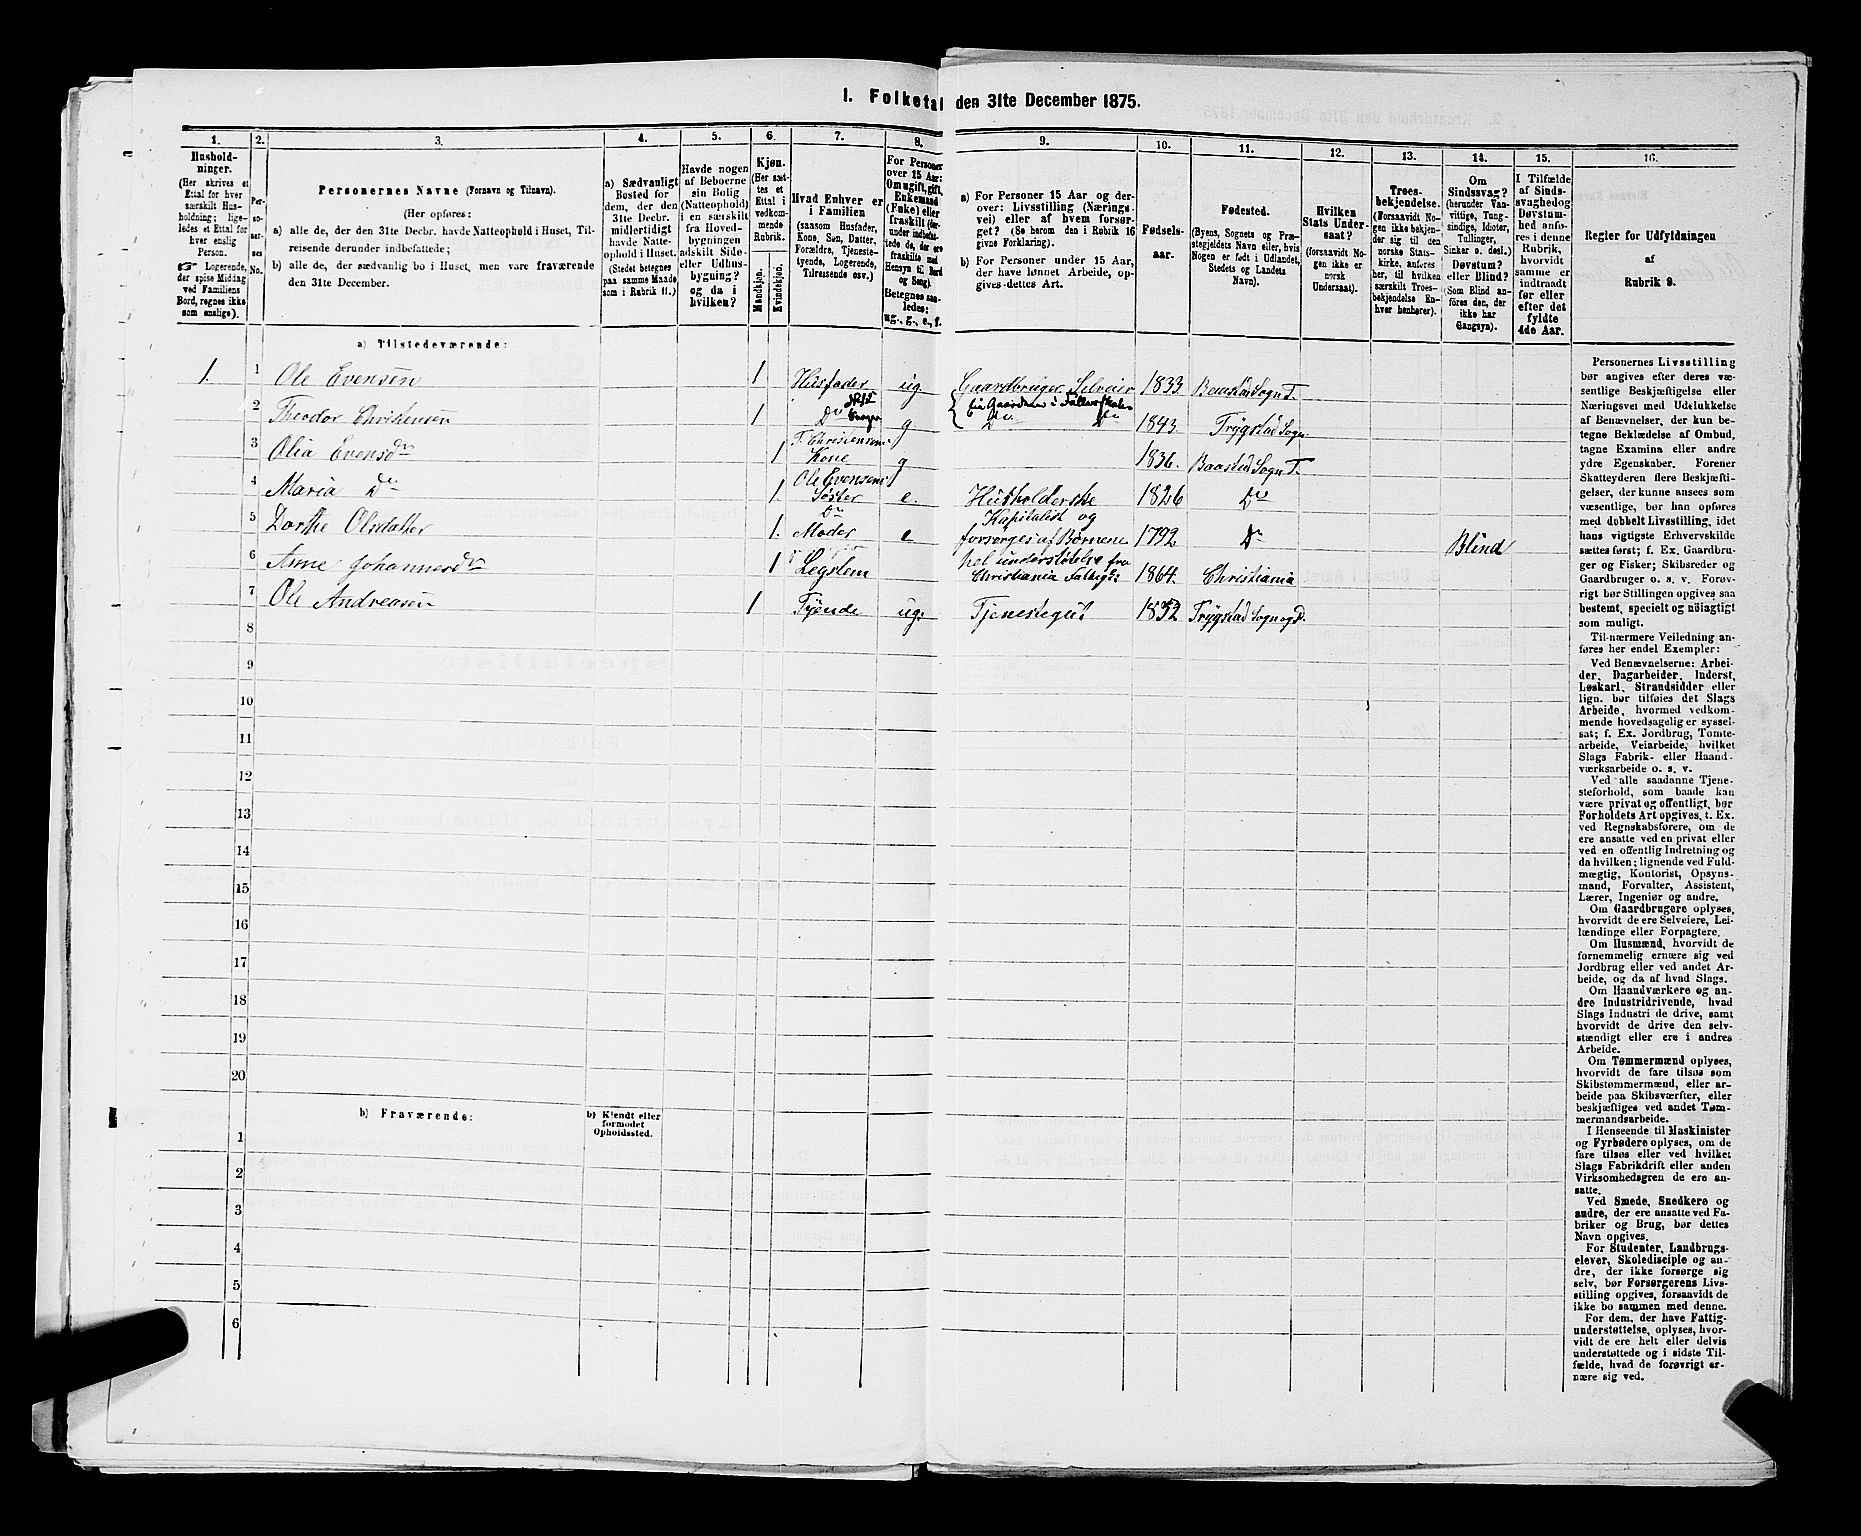 1. Folketal den 31te December 1875.
1. 2. 3. 4. 5. 6. 7. 8. 9. 10. 11. 12. 13. 14. 15. 16.
Hushold-
ninger.
(Her skrives et
Ettal for hver
særskilt Hus-
holdning; lige-
ledes et Ettal
for hver
enslig
Person.
☞ Logerende,
der spise Middag
ved Familiens
Bord, regnes ikke
som enslige).
Per-
so-
ner-
nes
No.
Personernes Navne (Fornavn og Tilnavn).
(Her opføres:
a) alle de, der den 31te Decbr. havde Natteophold i Huset, Til-
reisende derunder indbefattede;
b) alle de, der sædvanlig bo i Huset, men vare fraværende
den 31te December.
a) Sædvanligt
Bosted for
dem, der den
31te Decbr.
midlertidigt
havde Natte-
ophold i Huset.
(Stedet betegnes
paa samme Maade
som i Rubrik 11.)
Havde nogen
af Beboerne
sin Bolig
(Natteophold)
i en særskilt
fra Hoved-
bygningen
adskilt Side-
eller Udhus-
bygning?
og da i
hvilken?
Kjøn.
(Her sæt-
tes et
Ettal i
vedkom-
mende
Rubrik.
Mandkjøn.
Kvindekjøn.
Hvad Enhver er
i Familien
(saasom Husfader,
Kone, Søn, Datter,
Forældre, Tjeneste-
tyende, Logerende,
Tilreisende osv.)
For Personer
over 15 Aar:
Om ugift, gift,
Enkemand
(Enke) eller
fraskilt (der-
under indbefat-
tede de, der ere
fraskilte med
Hensyn til Bord
og Seng).
Betegnes saa-
ledes:
ug., g., e., f.
a) For Personer 15 Aar og der-
over: Livsstilling (Nærings-
vei) eller af hvem forsør-
get? (Se herom den i Rubrik 16
givne Forklaring).
b) For Personer under 15 Aar,
der have lønnet Arbeide, op-
gives dettes Art.
Fødsels-
aar.
Fødested.
(Byens, Sognets og Præ-
stegjeldets Navn eller, hvis
Nogen er født i Udlandet,
Stedets og Landets
Navn).
Hvilken
Stats Under-
saat?
(forsaavidt No-
gen ikke er
norsk
Undersaat).
Troes-
bekjendelse.
(Forsaavidt No-
gen ikke bekjen-
der sig til den
norske Stats-
kirke, anføres
her, til hvilken
særskilt Troes-
bekjendelse En-
hver henhører).
Om
Sindssvag?
(herunder Van-
vittige, Tung-
sindige, Idioter,
Tullinger,
Sinker o. desl.)
Døvstum?
eller Blind?
(Som Blind an-
føres den, der
ikke har
Gangsyn).
I Tilfælde
af Sinds-
svaghed og
Døvstum-
hed anfø-
res i denne
Rubrik,
hvorvidt
samme er
indtraadt
før eller
efter det
fyldte
4de Aar.
Regler for Udfyldningen
af
Rubrik 9.
a) Tilstedeværende:
1. 1 Ole Evensen 1 Husfader ug Gaardbruger Selveier 1833 Baastad Sogn T.
2 Theodor Christensen 1 Do g Do Do 1843. Trygstad Sogn
3 Olia Evensdr 1 T. Christensens Kone g 1836. Baastad Sogn T.
4 Maria Do 1 Ole Evensens Søster e. Husholderske 1826 Do
5 Dorthe Olsdatter 1. Do Moder e Kapitalist og forsørges af Børnene 1792 Do Blind
6 Anne Johannesdr 1 Legslem understøttelse fra Christiania 1864. Christiania
7 Ole Andreasen 1 Tyende ug. Tjenestegut 1852 Trygstad Sogn og P.
8
9
10
11
12
13
14
15
16
17
18
19
20
b) Fraværende:
b) Kjendt eller
formodet
Opholdssted.
1
2
3
4
5
6
Personernes Livsstilling
bør angives efter deres væ-
sentlige Beskjæftigelse eller
Næringsvei med Udelukkelse
af Benævnelser, der kun be-
tegne Beklædelse af Ombud,
tagne Examina eller andre
ydre Egenskaber. Forener
Skatteyderen flere Beskjæfti-
gelser, der kunne ansees som
væsentlige, bør han opføres
med dobbelt Livsstilling, idet
hans vigtigste Erhvervskilde
sættes først; f. Ex. Gaardbru-
ger og Fisker; Skibsreder og
Gaardbruger o. s. v. Forøv-
rigt bør Stillingen opgives saa
bestemt, specielt og nøiagtigt
som muligt.
Til nærmere Veiledning an-
føres her endel Exempler:
Ved Benævnelserne: Arbei-
der, Dagarbeider, Inderst,
Løskarl, Strandsidder eller
lign. bør tilføies det Slags
Arbeide, hvormed vedkom-
mende hovedsagelig er syssel-
sat; f. Ex. Jordbrug, Tomte-
arbeide, Veiarbeide, hvilket
Slags Fabrik- eller Haand-
værksarbeide o. s. v.
Ved alle saadanne Tjene-
steforhold, som baade kan
være privat og offentligt, bør
Forholdets Art opgives, t. Ex.
ved Regnskabsførere, om de
ere ansatte ved en privat eller
ved en offentlig Indretning og
da hvilken; lignende ved Fuld-
mægtig, Kontorist, Opsyns-
mand, Forvalter, Assistent,
Lærer, Ingeniør og andre.
Om Gaardbrugere oplyses,
hvorvidt de ere Selveiere, Lei-
lændinge eller Forpagtere.
Om Husmænd, hvorvidt de
fornemmelig ernære sig ved
Jordbrug eller ved andet Ar-
beide, og da af hvad Slags.
Om Haandværkere og an-
dre Industridrivende, hvad
Slags Industri de drive, samt
hvorvidt de drive den selv-
stændigt eller ere i andres
Arbeide.
Om Tømmermænd oplyses,
hvorvidt de fare tilsøs som
Skibstømmermænd, eller ar-
beide paa Skibsværfter, eller
beskjæftiges ved andet Tøm-
mermandsarbeide.
I Henseende til Maskinister
og Fyrbødere oplyses, om de
fare tilsøs eller ved hvilket
Slags Fabrikdrift eller anden
Virksomhedsgren de ere an-
satte.
Ved Smede, Snedkere og
andre, der ere ansatte ved Fa-
briker og Brug, bør dettes
Navn opgives.
For Studenter, Landbrugs-
elever, Skoledisciple og an-
dre, der ikke forsørge sig
selv, bør Forsørgerens Livs-
stilling opgives, forsaavidt de
ikke bo sammen med denne.
For dem, der have Fattig-
understøttelse, oplyses, hvor-
vidt de ere helt eller delvis
understøttede og i sidste Til-
fælde, hvad de forøvrigt er-
nære sig ved.